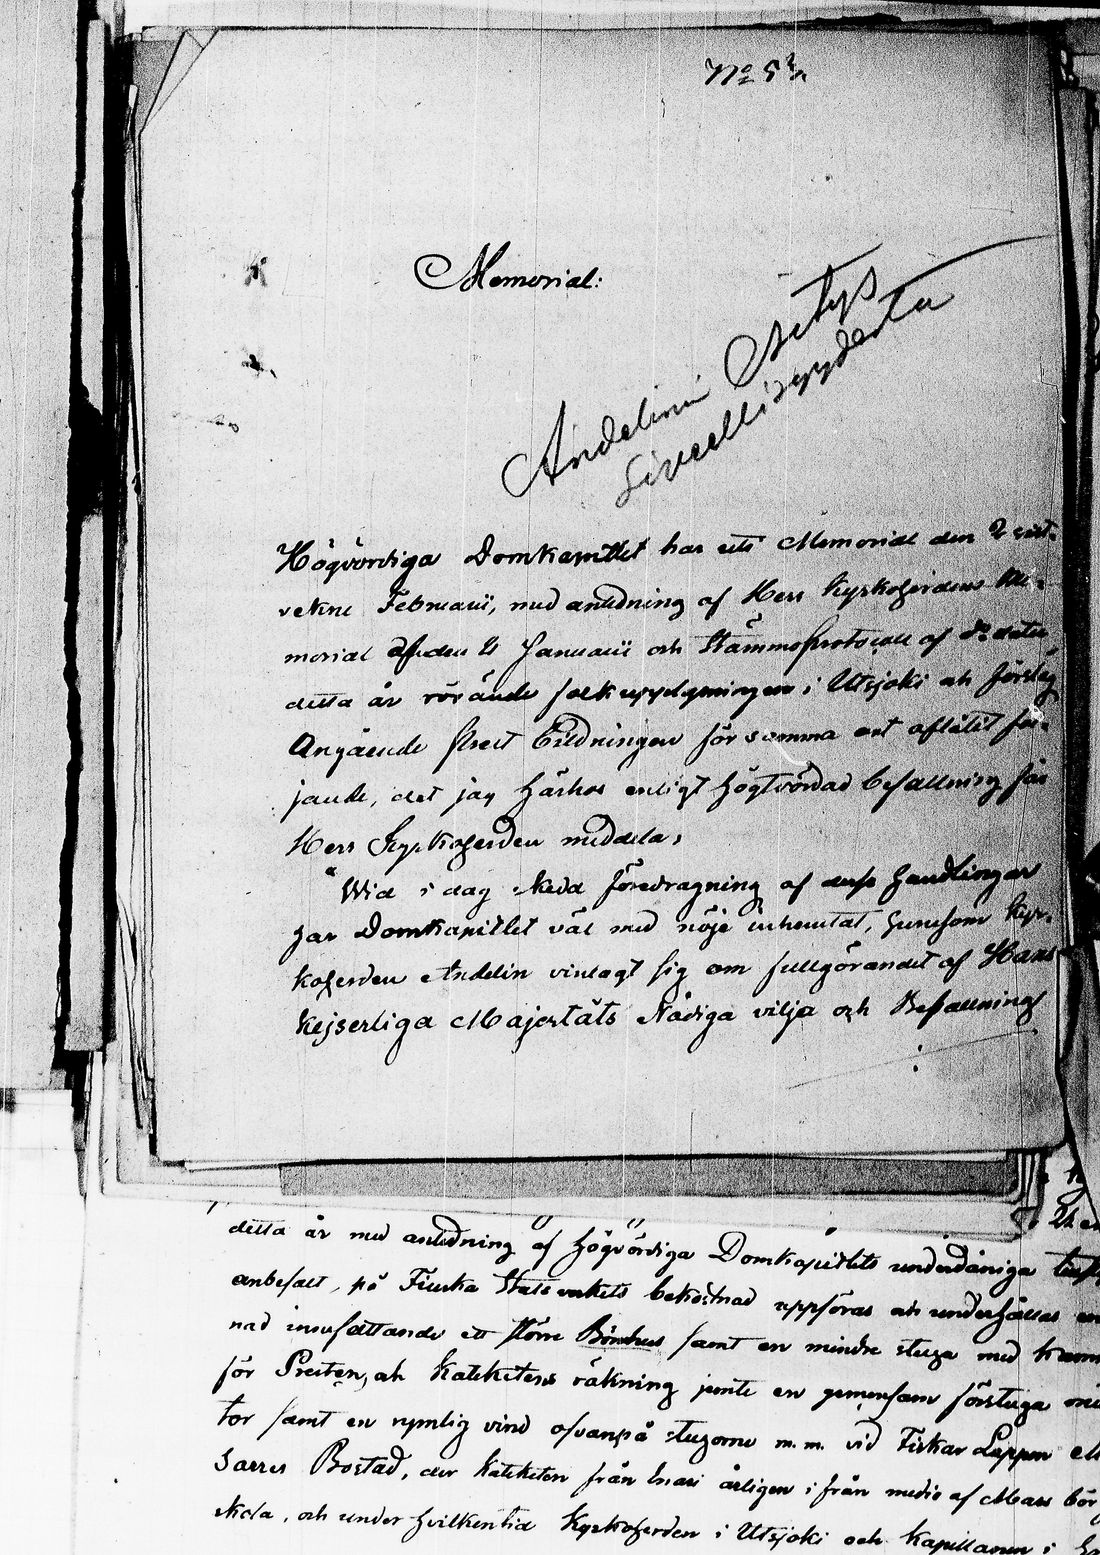 No 53/n
Memorial:
Andelini esitys
siveellisyydestä
Högvördiga Domkapitlet har uti Memorial den 2 sist-
vekne Februarii, med anledning af Herr Kyrkoherdens Me-
morial af den 21 Januarii och Stämmoprotocoll af do dato
detta år rörande folkupplysningen i Utsjoki och förslag
Angående Prest Bildningen för samma ort aflåtit föl-
jande, det jag härhos enligt högtvördad befallning får
Herr Kyrkoherden meddela;
"Wid i dag skedd föredragning af dessa handlingar
har Domkapitlet väl med nöje inhemtat, hurusom Kyr-
koherden Andelin vinlagt sig om fullgörandet af Hans
Kejserliga Majestäts Nådiga vilja och Befallning
detta år med anledning af högvördiga Domkapitlets underdåniga
anbefalt, på Finska Statsverkets bekostnad uppföras och underhållas en
nad innefattande ett större Bönehus samt en mindre stuga med kam
för Presten, och Kateketens räkning jemte en gemensam förstuga
tor samt en rymlig vind ofvanpå stugorne m.m. vid Fiskar Lappen
Sarres Bostad, der kateketen från Inari årligen ifrån medio af Mars bör
skola, och under hvilken tid Kyrkoherden i Utsjoki och Kapellanen i